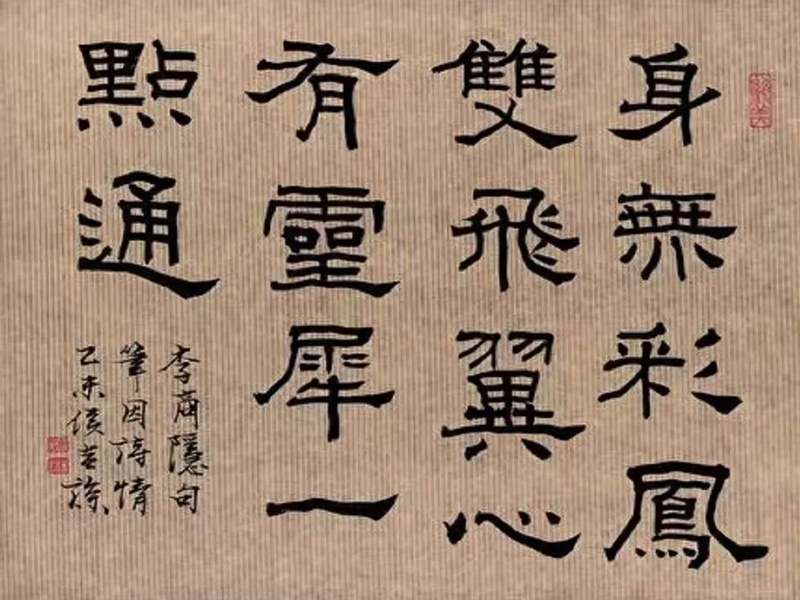 身無彩鳳
雙飛翼心
有靈犀一
點通
李商隱句
筆因詩情
乙未侯吉諒